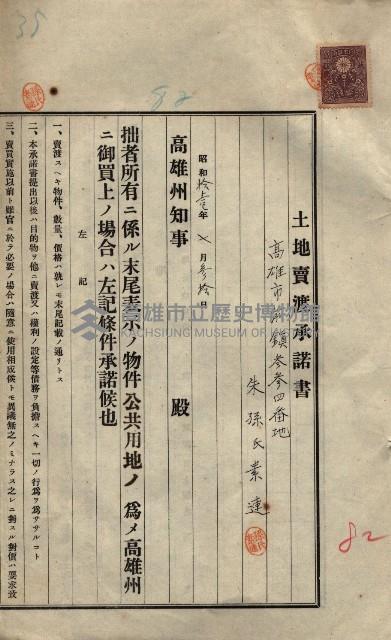 土地賣渡承諾書
高雄市前鎮參參四番地
朱孫氏素蓮
昭和拾壹年 七月參拾日
高雄州知事 殿
拙者所有ニ係ル末尾表示ノ物件公共用地ノ爲メ高雄州
ニ御買上ノ場合ハ左記條件承諾候也
左記
一、賣渡スヘキ物件、數量、價格ハ孰レモ末尾記載ノ通リトス
二、本承諾書提出以後ハ目的物ヲ他ニ賣渡又ハ權利ノ設定等債務ヲ負擔スヘキ一切ノ行爲ヲ爲ササルコト
三、賣買實施以前ト雖官ニ於テ必要ノ場合ハ隨意ニ使用相成候トモ異議無之ノミナラス之レニ對スル對價ハ要求致
35
82
82
高雄市立歷史博物館
KAOHSIUNG MUSEUM OF HISTORY